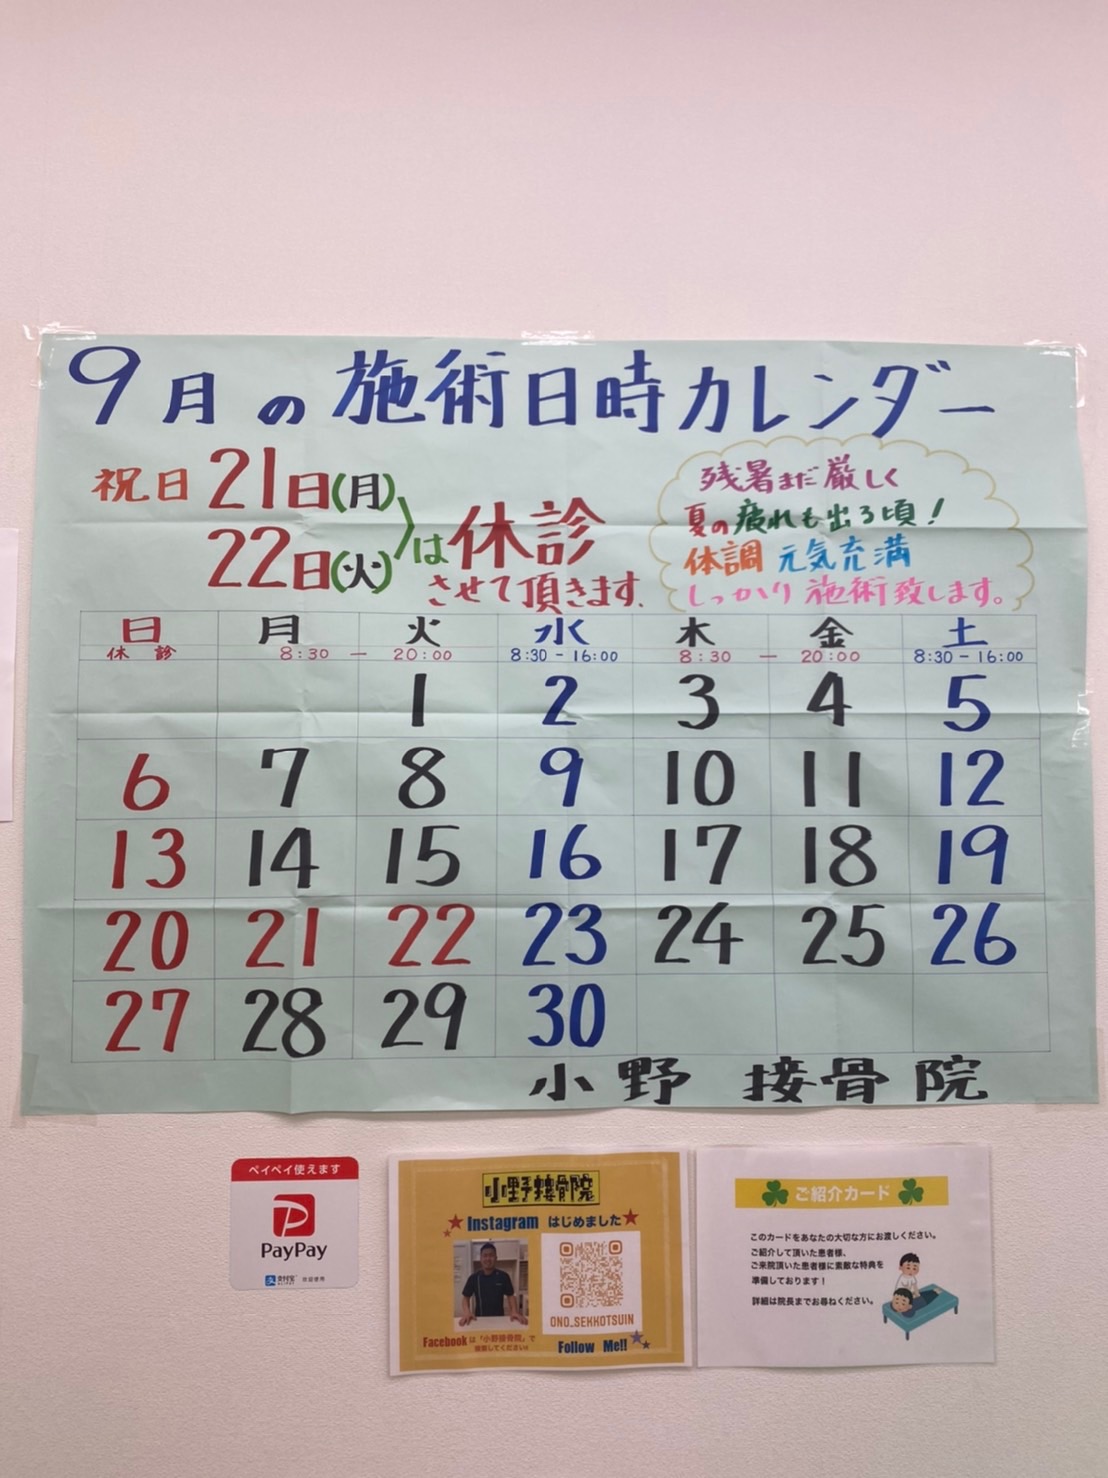 9月の施術日時カレンダー
祝日 21日(月)
22日(火)
は休診
させて頂きます.
残暑まだ厳しく
夏の疲れも出る頃!
体調 元気充満
しっかり施術致します。
日 月 火 水 木 金 土
休診 8:30 — 20:00 8:30-16:00 8:30 — 20:00 8:30-16:00
1 2 3 4 5
6 7 8 9 10 11 12
13 14 15 16 17 18 19
20 21 22 23 24 25 26
27 28 29 30
小野 接骨院
ペイペイ使えます
PayPay
支付宝
欢迎使用
小野接骨院
★Instagram はじめました★
ONO_SEKKOTSUIN
Facebookは「小野接骨院」で
検索してください!!
Follow Me!!
ご紹介カード
このカードをあなたの大切な方にお渡しください。
ご紹介して頂いた患者様、
ご来院頂いた患者様に素敵な特典を
準備しております!
詳細は院長までお尋ねください。